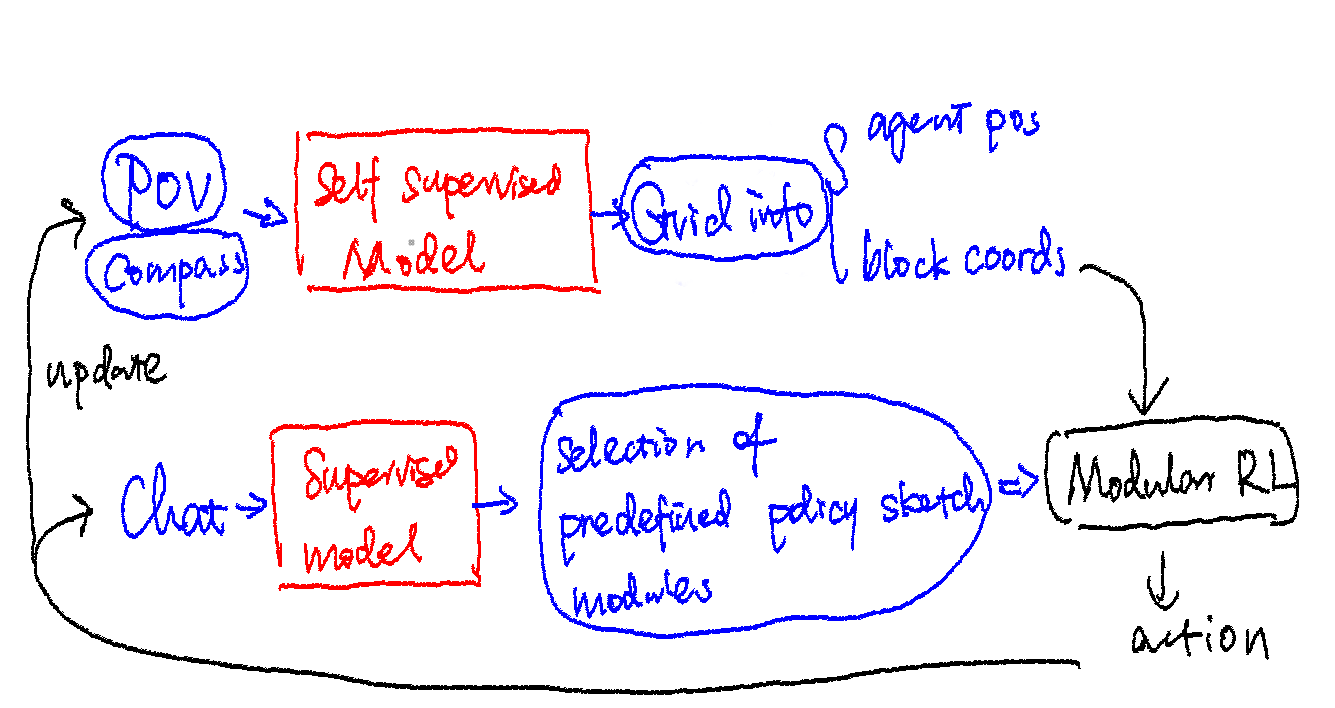 agent pos
POV
Self supervised
Model
Grid info
Compass
block coords
update
Supervised
model
selection of
predefined policy sketch
modules
Modular RL
Chat
action